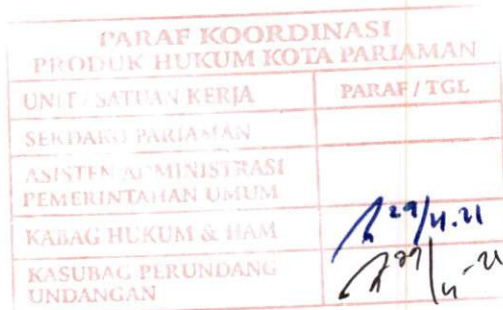 PARAF KOORDINASI
PRODUK HUKUM KOTA PARIAMAN
UNIT / SATUAN KERJA PARAF / TGL
SEKDAKO PARIAMAN
ASISTEN ADMINISTRASI
PEMERINTAHAN UMUM
KABAG HUKUM & HAM 29/4.21
KASUBAG PERUNDANG
UNDANGAN